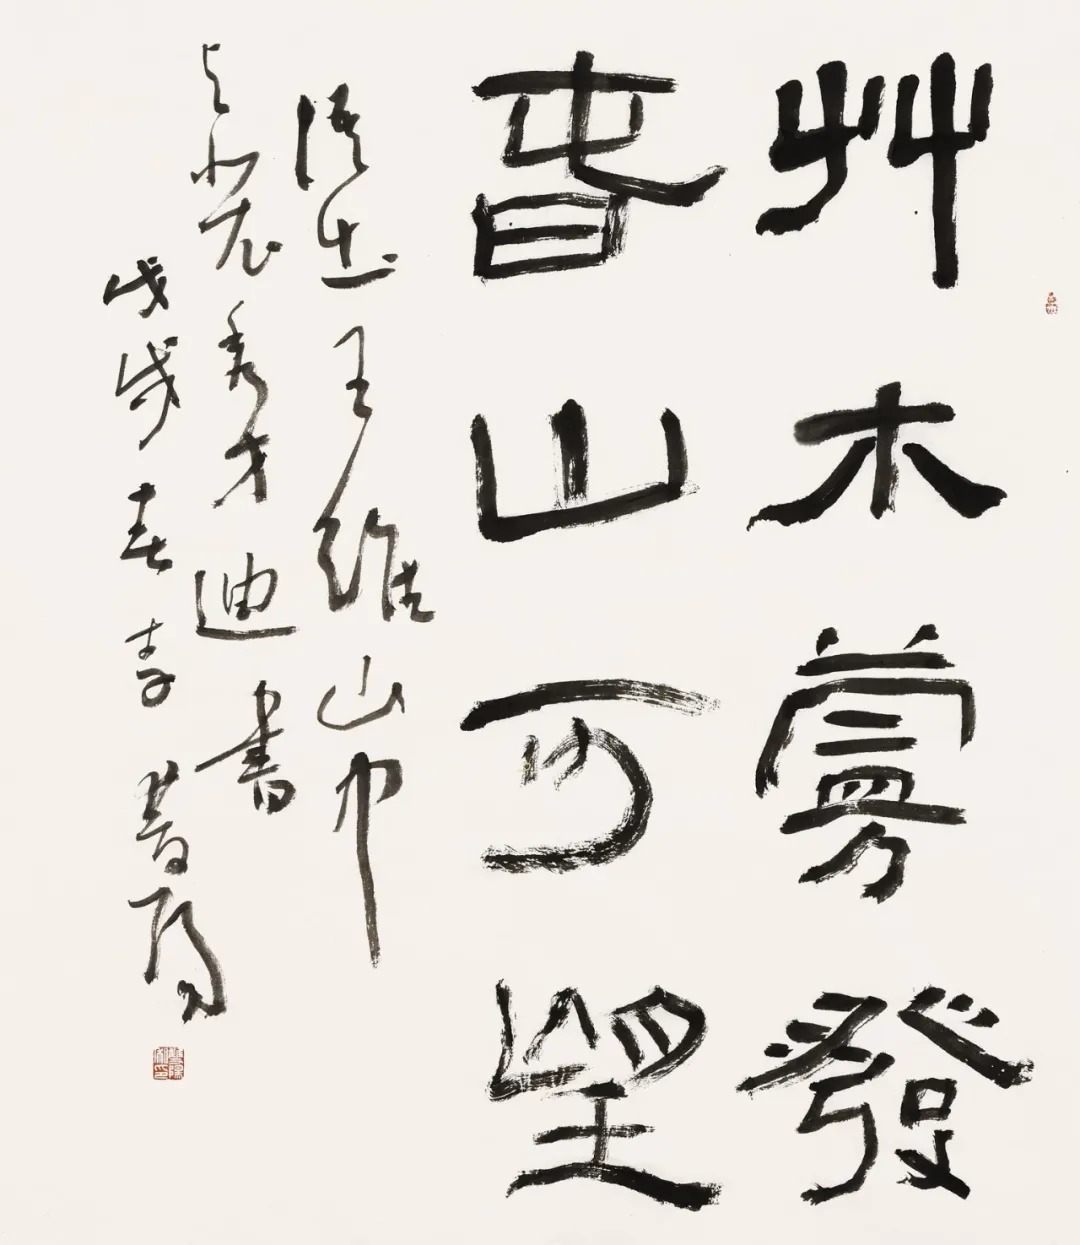 艸木蔓發
春山可望
語出王維山中
与裴秀才迪書
戊戌春李雙陽